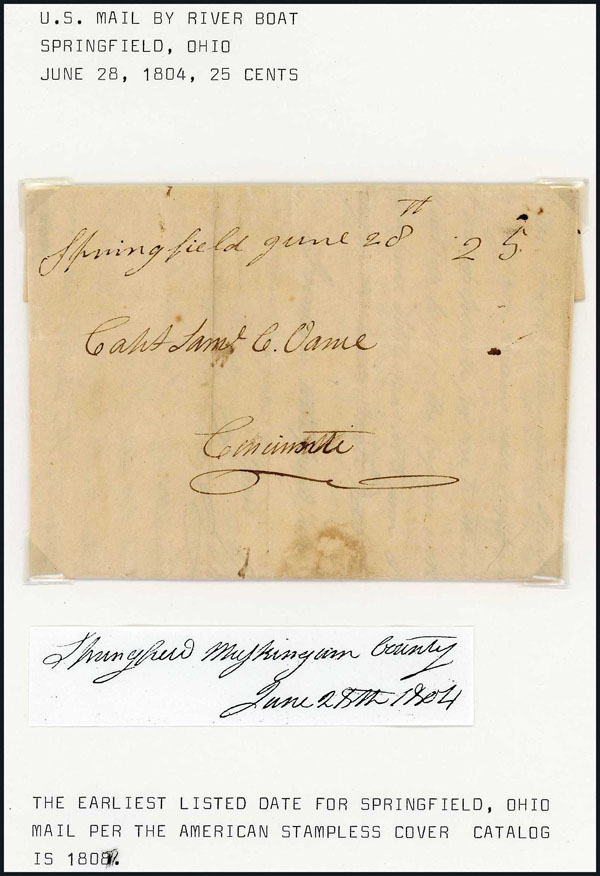 U.S. MAIL BY RIVER BOAT
SPRINGFIELD, OHIO
JUNE 28, 1804, 25 CENTS
Springfield June 28th 25
Capt Saml C. Vance
Cincinnati
Springfield Muskingum County
June 28th 1804
THE EARLIEST LISTED DATE FOR SPRINGFIELD, OHIO
MAIL PER THE AMERICAN STAMPLESS COVER CATALOG
IS